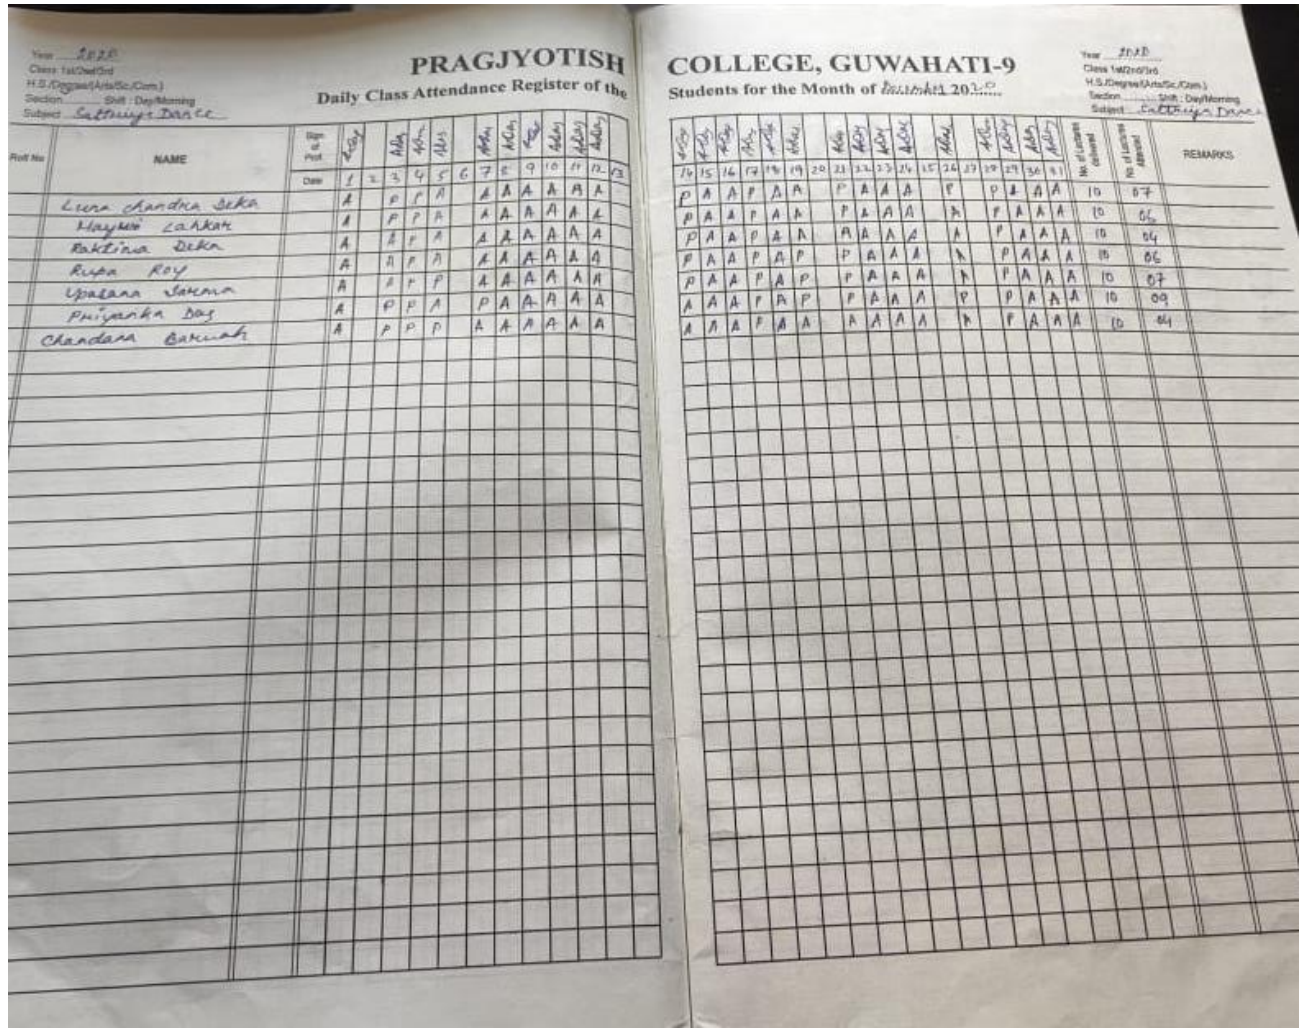 Year 2020
Class 1st/2nd/3rd
H.S./Degree(Arts/Sc./Com.)
Section ........ Shift : Day/Morning
Subject Sattriya Dance
PRAGJYOTISH
Daily Class Attendance Register of the
Roll No NAME Sign of Prof.
Date 1 2 3 4 5 6 7 8 9 10 11 12 13
Luna Chandra Deka A P P A A A A A A A
Lahkar A P P A A A A A A A
Raktima Deka A A P A A A A A A A
Rupa Roy A A P A A A A A A A
Upasana Sarma A A P P A A A A A A
Priyanka Das A P P A P A A A A A
Chandana Baruah A P P P A A A A A A
COLLEGE, GUWAHATI-9
Students for the Month of December 2020
Year 2020
Class 1st/2nd/3rd
H.S./Degree/(Arts/Sc./Com.)
Section ........ Shift : Day/Morning
Subject Sattriya Dance
No. of Lectures Delivered No. of Lectures Attended REMARKS
14 15 16 17 18 19 20 21 22 23 24 25 26 27 28 29 30 31
P A A P A A P A A A P P A A A 10 07
P A A P A A P A A A A P A A A 10 05
P A A P A A A A A A A P A A A 10 04
P A A P A P P A A A A P A A A 10 06
P A A P A P P A A A A P A A A 10 07
A A A P A P P A A A P P A A A 10 09
A A A P A A A A A A A P A A A 10 04